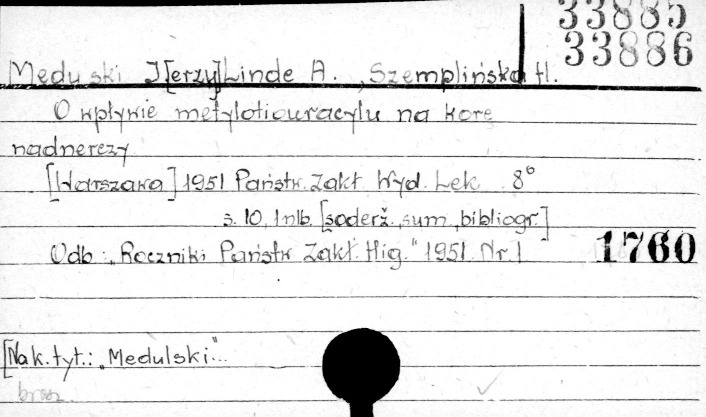 33885
33886
Meduski J[erzy] Linde A., Szemplińska H.
O wpływie metylotiouracylu na korę
nadnerczy
[Warszawa] 1951 Państw. Zakł. Wyd. Lek 8°
s. 10, 1 nlb. [soderż., sum., bibliogr.]
Odb.: „Roczniki Państw Zakł. Hig." 1951. Nr. 1
1760
[Na k. tyt.: „Medulski"...
brosz.